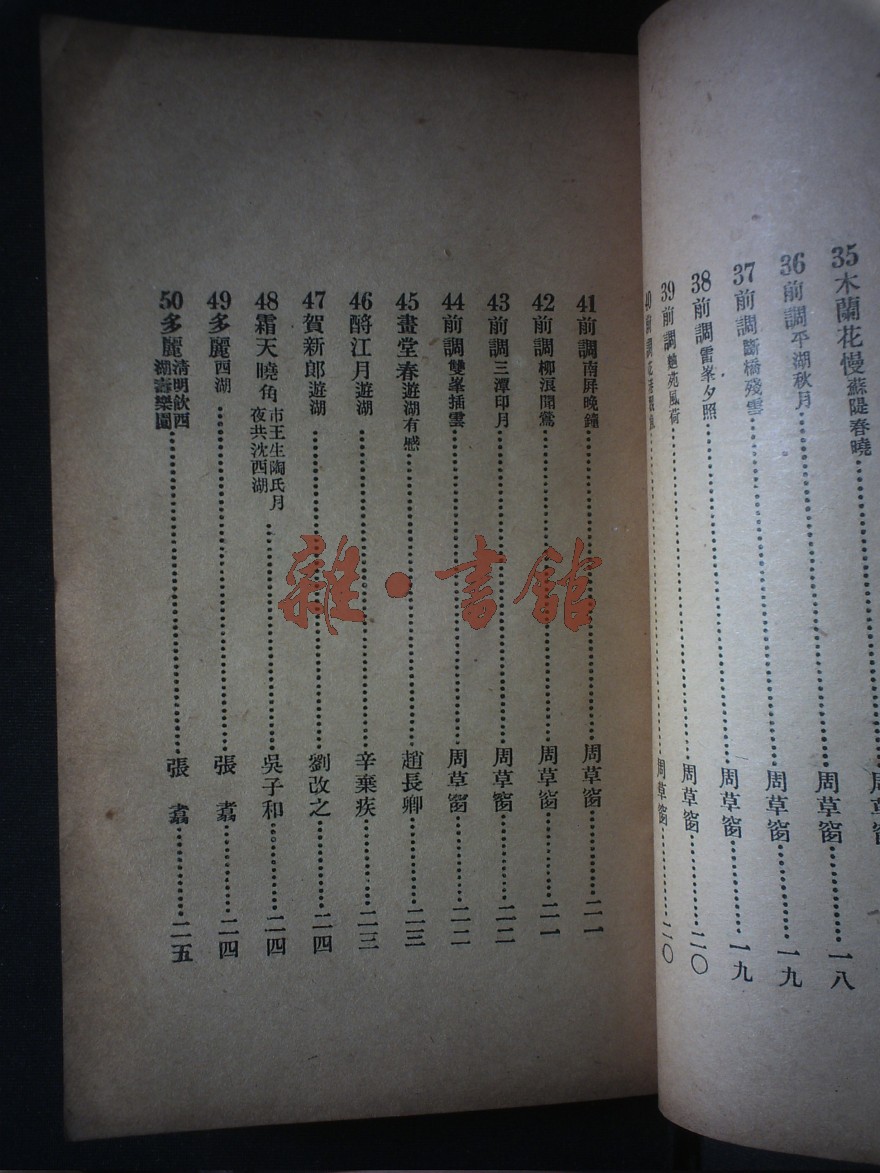 35木蘭花慢蘇隄春曉……周草窗……一八
36前調平湖秋月……周草窗……一九
37前調斷橋殘雪……周草窗……一九
38前調雷峯夕照……周草窗……二〇
39前調麯苑風荷……周草窗……二〇
40前調
41前調南屏晚鐘……周草窗……二一
42前調柳浪聞鶯……周草窗……二一
43前調三潭印月……周草窗……二二
44前調雙峯插雲……周草窗……二二
45畫堂春遊湖有感……趙長卿……二三
46酹江月遊湖……辛棄疾……二三
47賀新郎遊湖……劉改之……二四
48霜天曉角市王生陶氏月夜共沈西湖……吳子和……二四
49多麗西湖……張翥……二四
50多麗清明飲西湖壽樂園……張翥……二五
雜·書館